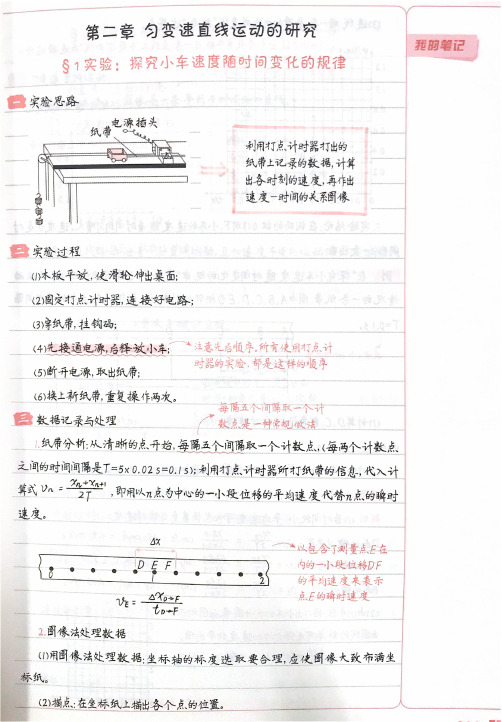 第二章 匀变速直线运动的研究
我的笔记
§1实验：探究小车速度随时间变化的规律
一 实验思路
电源插头
纸带
利用打点计时器打出的
纸带上记录的数据,计算
出各时刻的速度,再作出
速度-时间的关系图像
二 实验过程
(1)木板平放,使滑轮伸出桌面;
(2)固定打点计时器,连接好电路;
(3)穿纸带,挂钩码;
(4)先接通电源,后释放小车;
注意先后顺序,所有使用打点计
时器的实验,都是这样的顺序
(5)断开电源,取出纸带;
(6)换上新纸带,重复操作两次。
每隔五个间隔取一个计
数点是一种常规做法
三 数据记录与处理
1.纸带分析:从清晰的点开始,每隔五个间隔取一个计数点,(每两个计数点
之间的时间间隔是T=5×0.02s=0.1s);利用打点计时器所打纸带的信息,代入计
算式 vn = (xn+xn+1)/2T ,即用以n点为中心的一小段位移的平均速度代替n点的瞬时
速度。
Δx
D E F
0 1 2
vE = ΔxD→F / tD→F
以包含了测量点E在
内的一小段位移DF
的平均速度来表示
点E的瞬时速度
2.图像法处理数据
(1)用图像法处理数据:坐标轴的标度选取要合理,应使图像大致布满坐
标纸。
(2)描点:在坐标纸上描出各个点的位置。